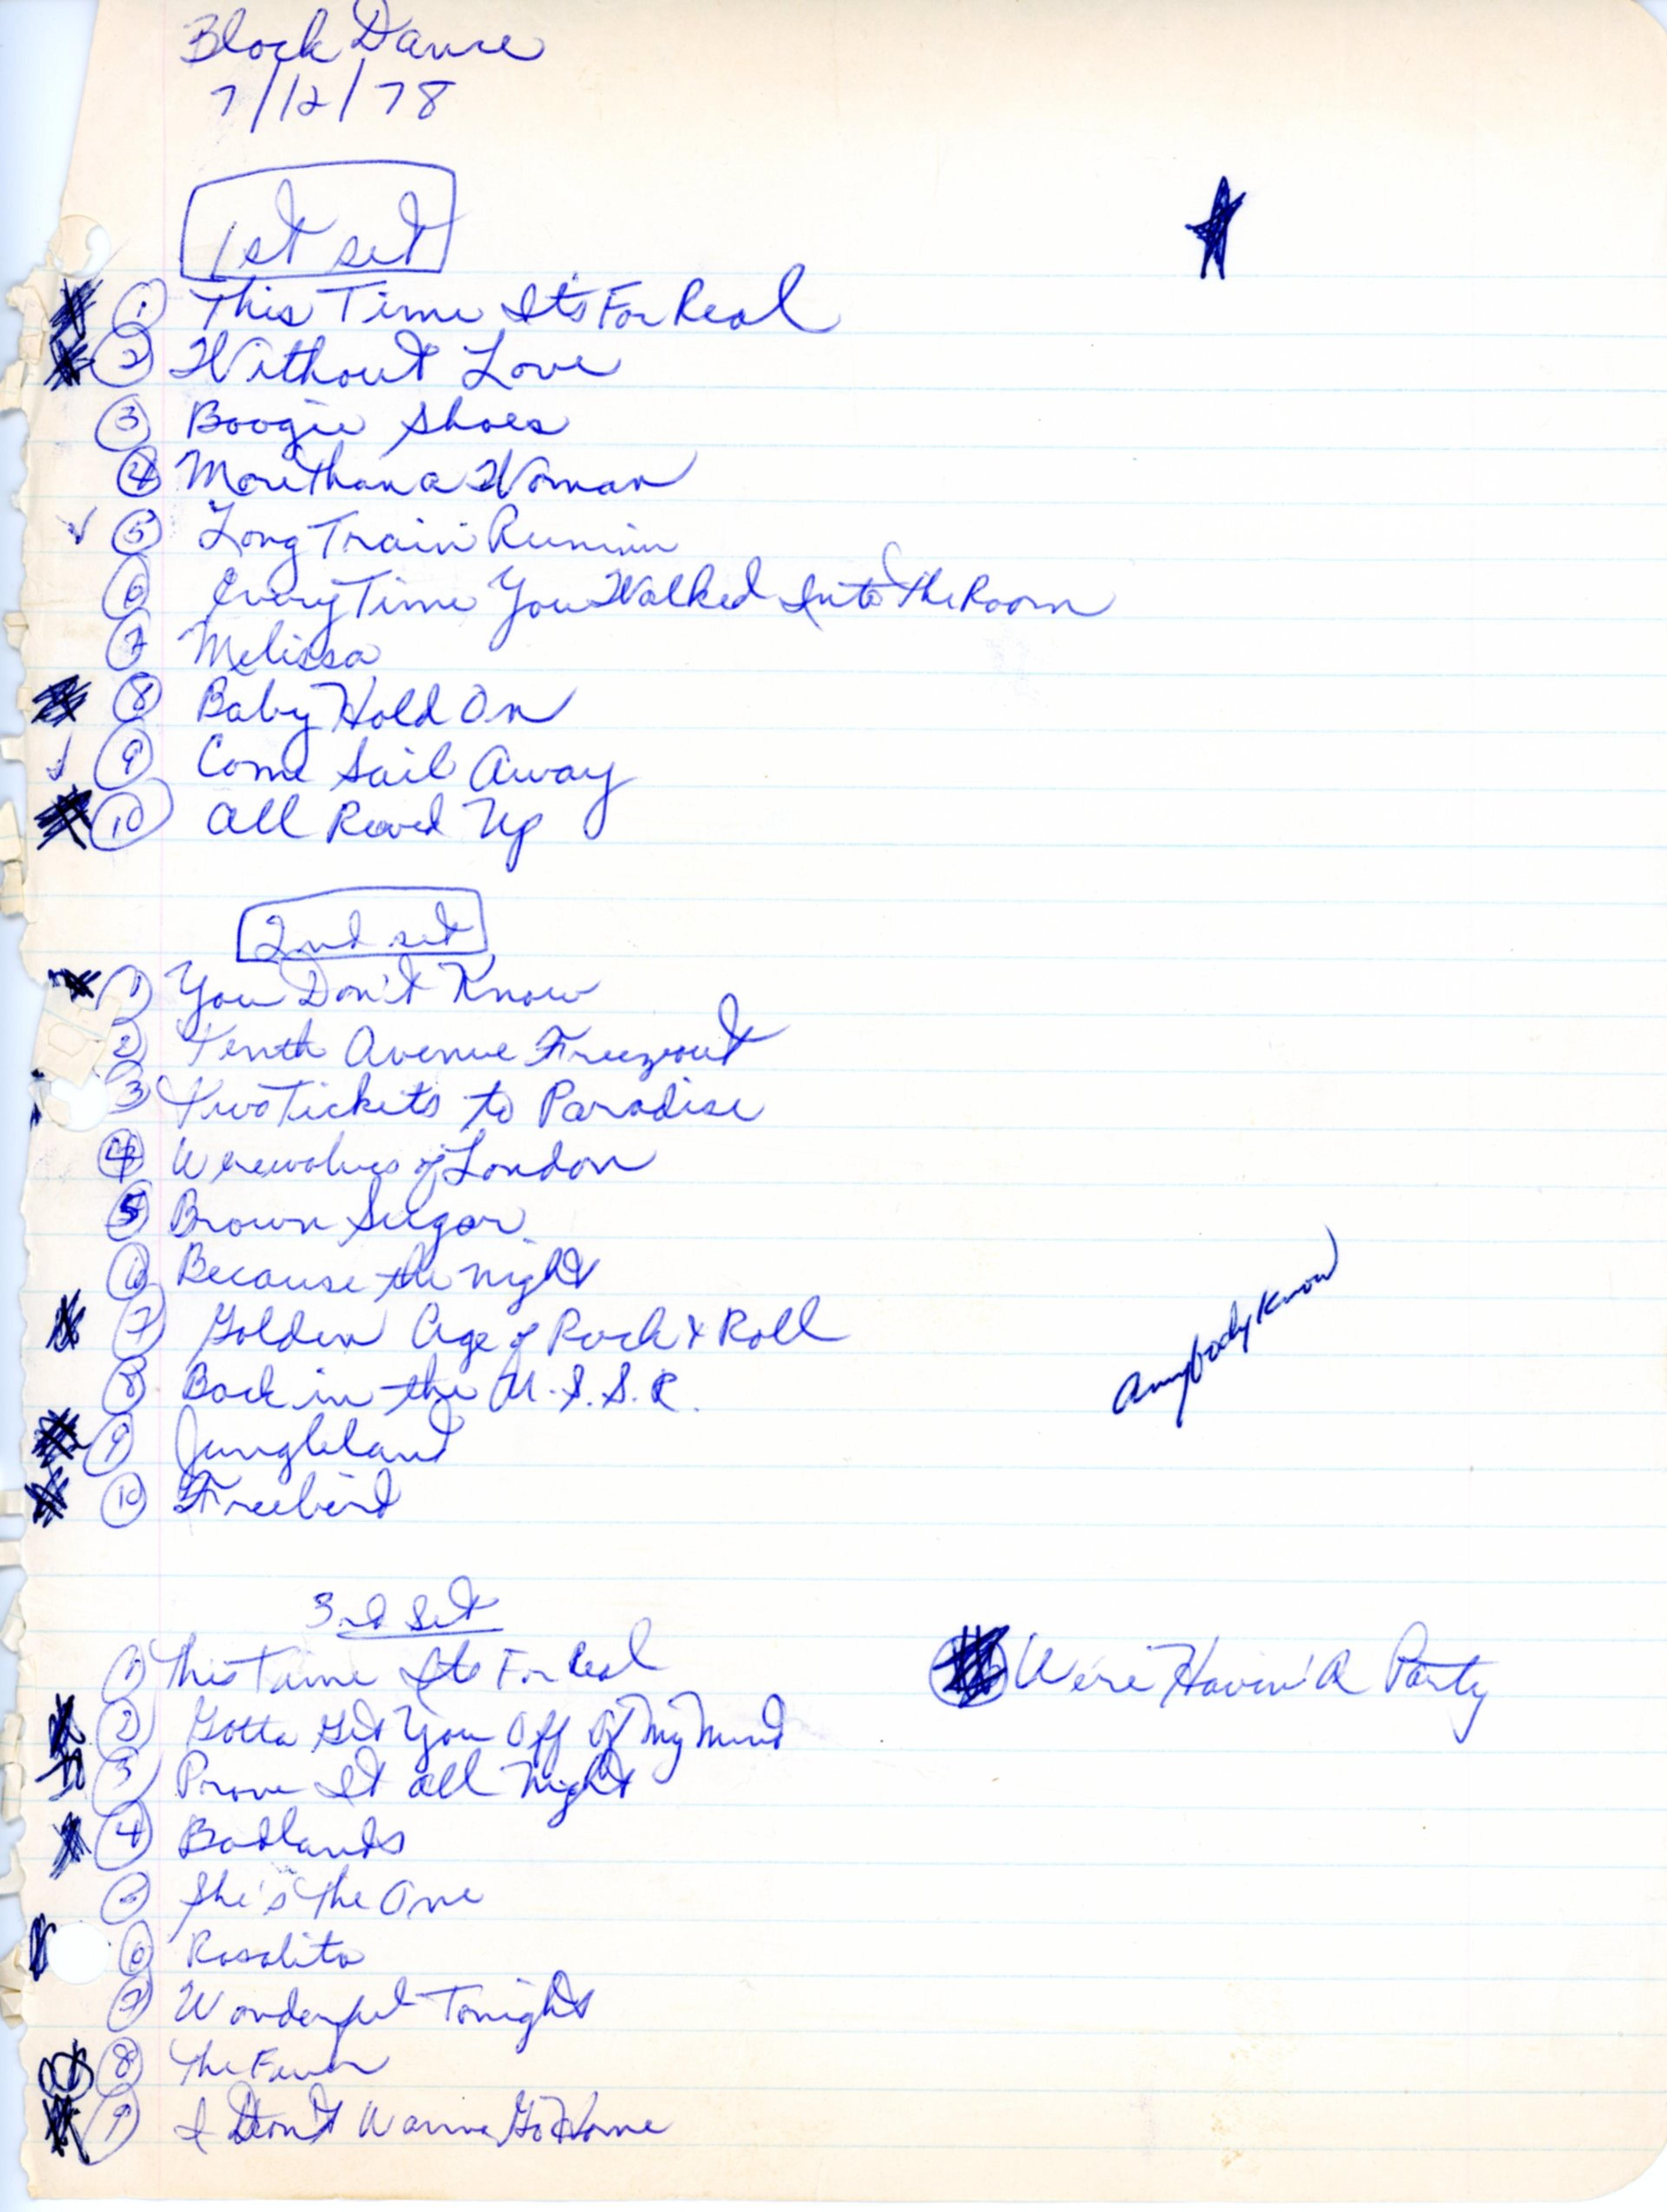 Block Dance
7/12/78
1st set
1 This Time Its For Real
2 Without Love
3 Boogie Shoes
4 More than a Woman
5 Long Train Runnin
6 Every Time You Walked Into the Room
7 Melissa
8 Baby Hold On
9 Come Sail Away
10 All Reved Up
2nd set
1 You Don't Know
2 Tenth Avenue Freezeout
3 Two Tickets to Paradise
4 Werewolves of London
5 Brown Sugar
6 Because the night
7 Golden Age of Rock & Roll
8 Back in the U.S.S.R.
Anybody Know
9 Jungleland
10 Freebird
3rd Set
1 This Time Its For Real
We're Havin' A Party
2 Gotta Get You Off Of My Mind
3 Prove It all Night
4 Badlands
5 She's the One
6 Rosalita
7 Wonderful Tonight
8 The Fever
9 I Don't Wanna Go Home